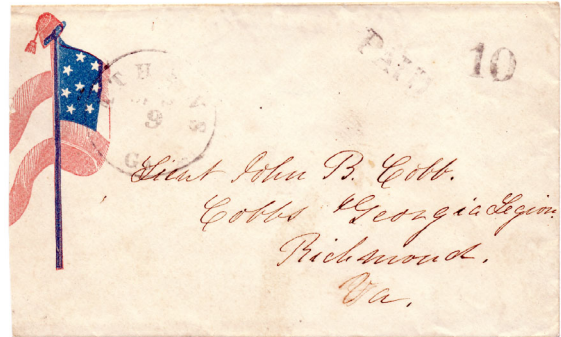 ATHENS
9
GA
PAID 10
Lieut John B. Cobb.
Cobbs Georgia Legion.
Richmond.
Va.